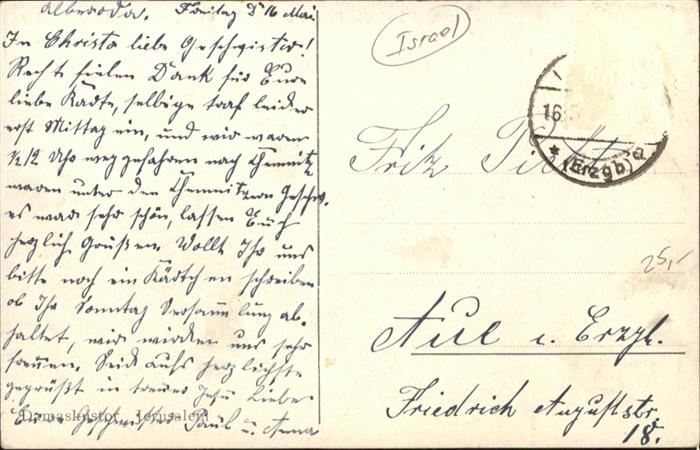 Alberoda. Freitag d 16 Mai
In Christo liebe Geschwister!
Recht fielen Dank für Eure
liebe Kaate, selbige traf leider
erst Mittag ein, und wir waren
1/2 2 Uhr weg gefahren nach Chemnitz
waren unter den Chemnitzern Geschw.
es war sehr schön, lassen Euch
herzlich Grüßen. Wollt Ihr uns
bitte noch ein Kärtchen schreiben
ob Ihr Sonntag Versammlung ab-
haltet, wir würden uns sehr
freuen. Seid aufs herzlichste
gegrüßt in treuer Jesu Liebe
Eure Geschwister Paul u. Anna
Damaskustor, Jerusalem
Israel
16.5
* (Erzgb)
Fritz
25,-
Aue i. Erzgb.
Friedrich Auguststr.
18.